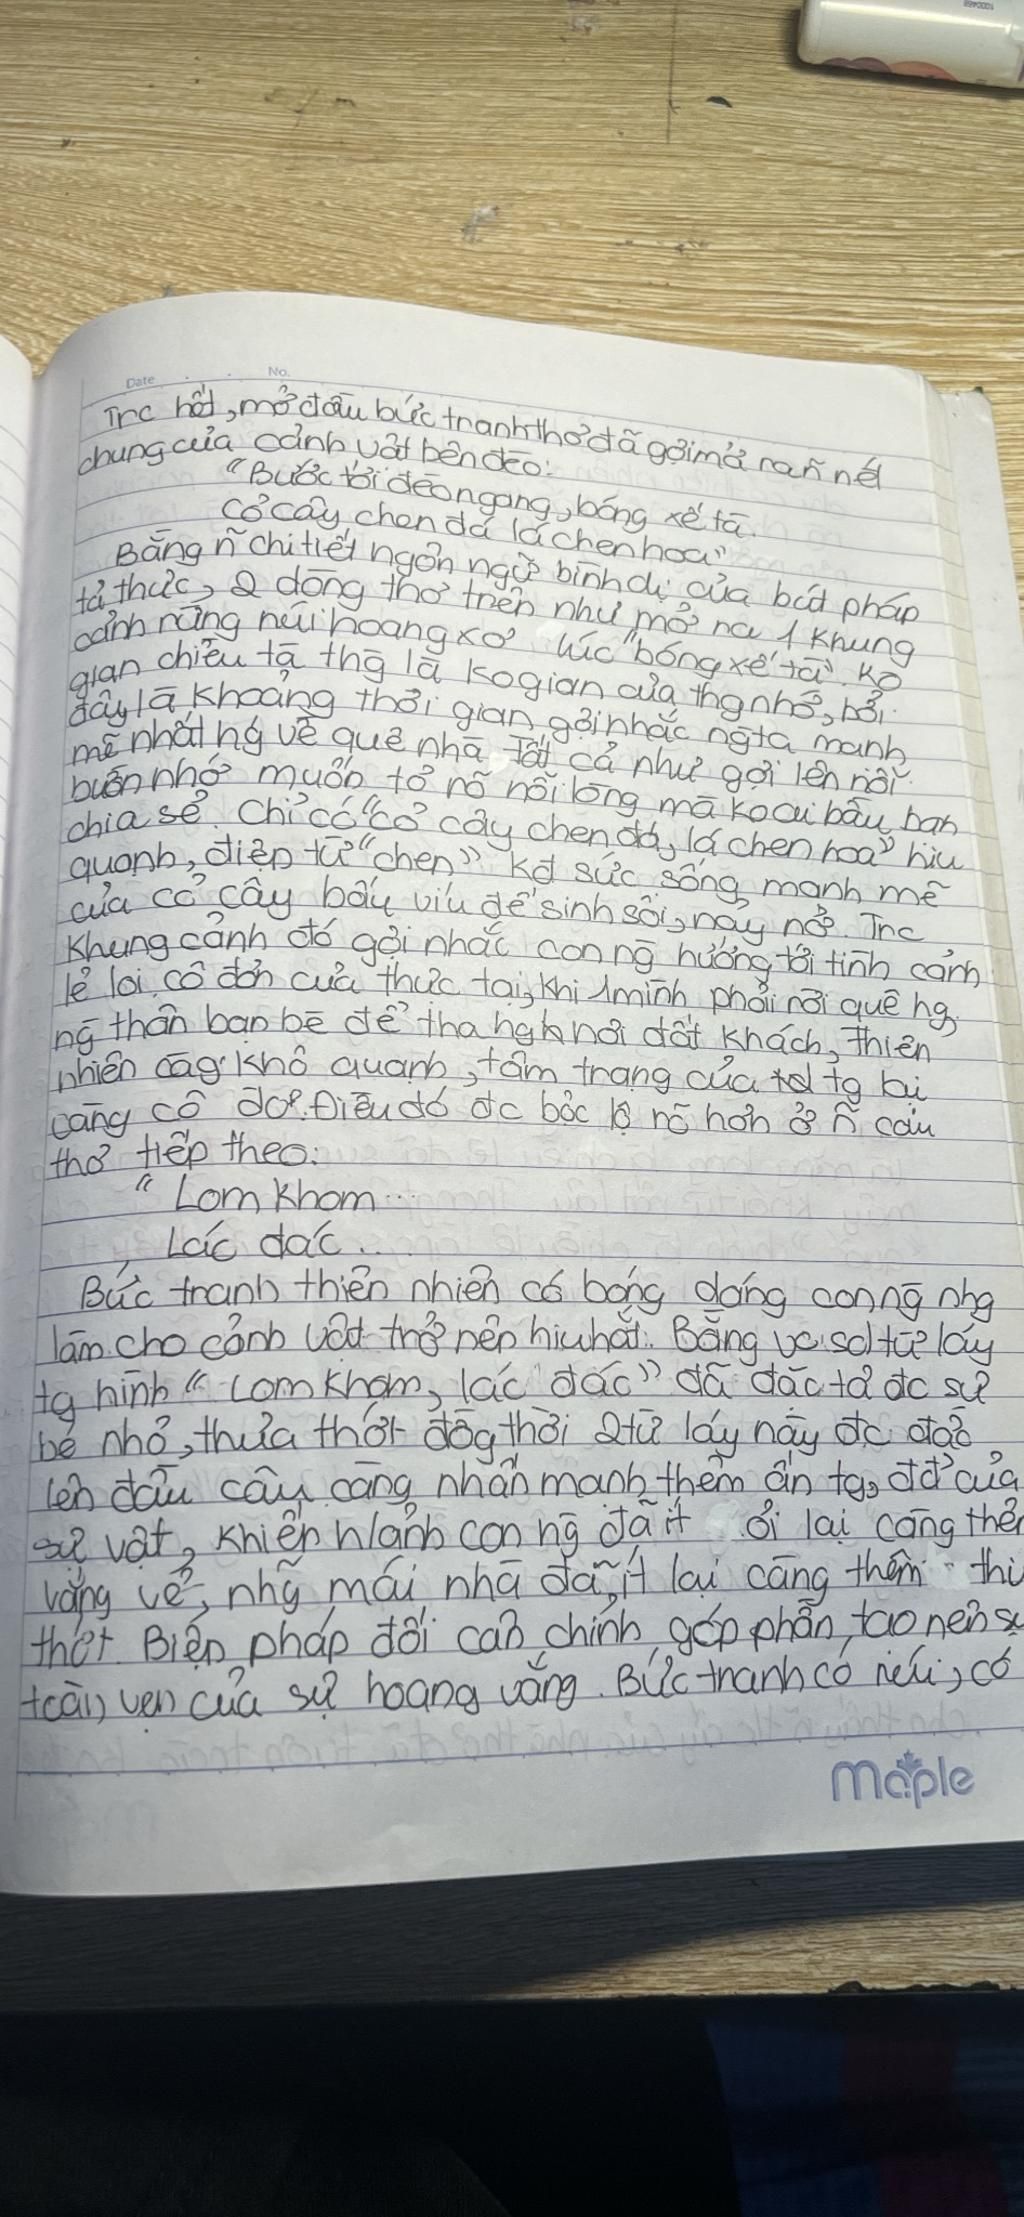 Date . . No.
Trc hết, mở đầu bức tranh thơ đã gợi mở ra ñ nét
chung của cảnh vật bên đèo:
"Bước tới đèo ngang, bóng xế tà
cỏ cây chen đá lá chen hoa"
Bằng ñ chi tiết ngôn ngữ bình dị của bút pháp
tả thực, 2 dòng thơ trên như mở ra 1 khung
cảnh rừng núi hoang xơ lúc "bóng xế tà". Ko
gian chiều tà thg là ko gian của thg nhớ, bởi
đây là khoảng thời gian gợi nhắc ngta mạnh
mẽ nhất hg về quê nhà. Tất cả như gợi lên nỗi
buồn nhớ muốn tỏ rõ nỗi lòng mà ko ai bầu bạn
chia sẻ. Chỉ có "cỏ cây chen đá, lá chen hoa" hiu
quạnh, điệp từ "chen" kđ sức sống mạnh mẽ
của cỏ cây bấu víu để sinh sôi, nảy nở. Trc
khung cảnh đó gợi nhắc con ng̃ hướng tới tình cảnh
lẻ loi cô đơn của thực tại, khi 1 mình phải rời quê hg,
ng̃ thân bạn bè để tha hg nơi đất khách, thiên
nhiên càg khô quạnh, tâm trạng của tg lại
càng cô đơn. Điều đó đc bộc lộ rõ hơn ở ñ câu
thơ tiếp theo:
"Lom khom...
Lác đác...
Bức tranh thiên nhiên có bóng dáng con ng̃ nhg
làm cho cảnh vật trở nên hiu hắt. Bằng vc sd từ láy
tg hình "Lom khom, lác đác" đã đặc tả đc sự
bé nhỏ, thưa thớt đồg thời 2 từ láy này đc đảo
lên đầu câu càng nhấn mạnh thêm ấn tg, đđ của
sự vật, khiến h/ảnh con ng̃ đã ít ỏi lại càng thêm
vắng vẻ, nhg̃ mái nhà đã ít lại càng thêm
thớt. Biện pháp đối cân chỉnh góp phần tạo nên sự
toàn vẹn của sự hoang vắng. Bức tranh có núi, có
maple